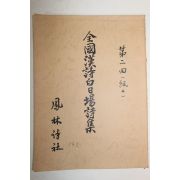 第二回
全國漢詩白日場詩集
鳳林詩社